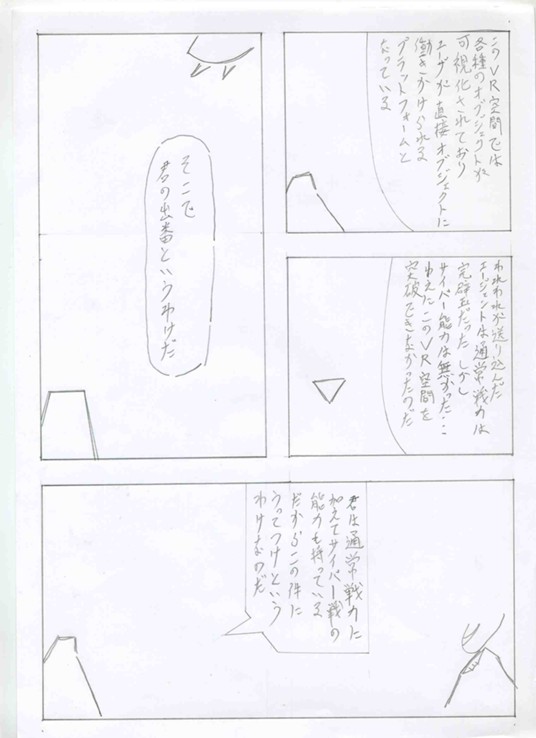 このVR空間では
各種のオブジェクトが
可視化されており
ユーザが直接オブジェクトに
働きかけられる
プラットフォームと
なっている
われわれが送り込んだ
エージェントは通常戦力は
完璧だった しかし
サイバー能力は無かった…
ゆえにこのVR空間を
突破できなかったのだ
そこで
君の出番というわけだ
君は通常戦力に
加えてサイバー戦の
能力も持っている
だからこの件に
うってつけという
わけなのだ